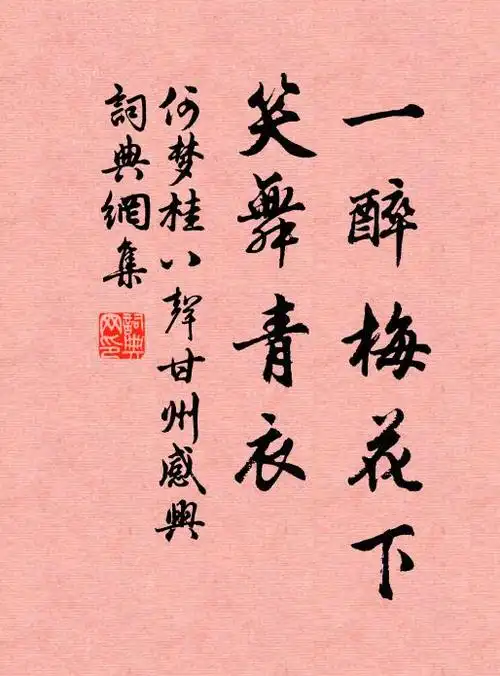 一醉梅花下
笑舞青衣
何梦桂八聲甘州感興
詞典網集
詞典
网印